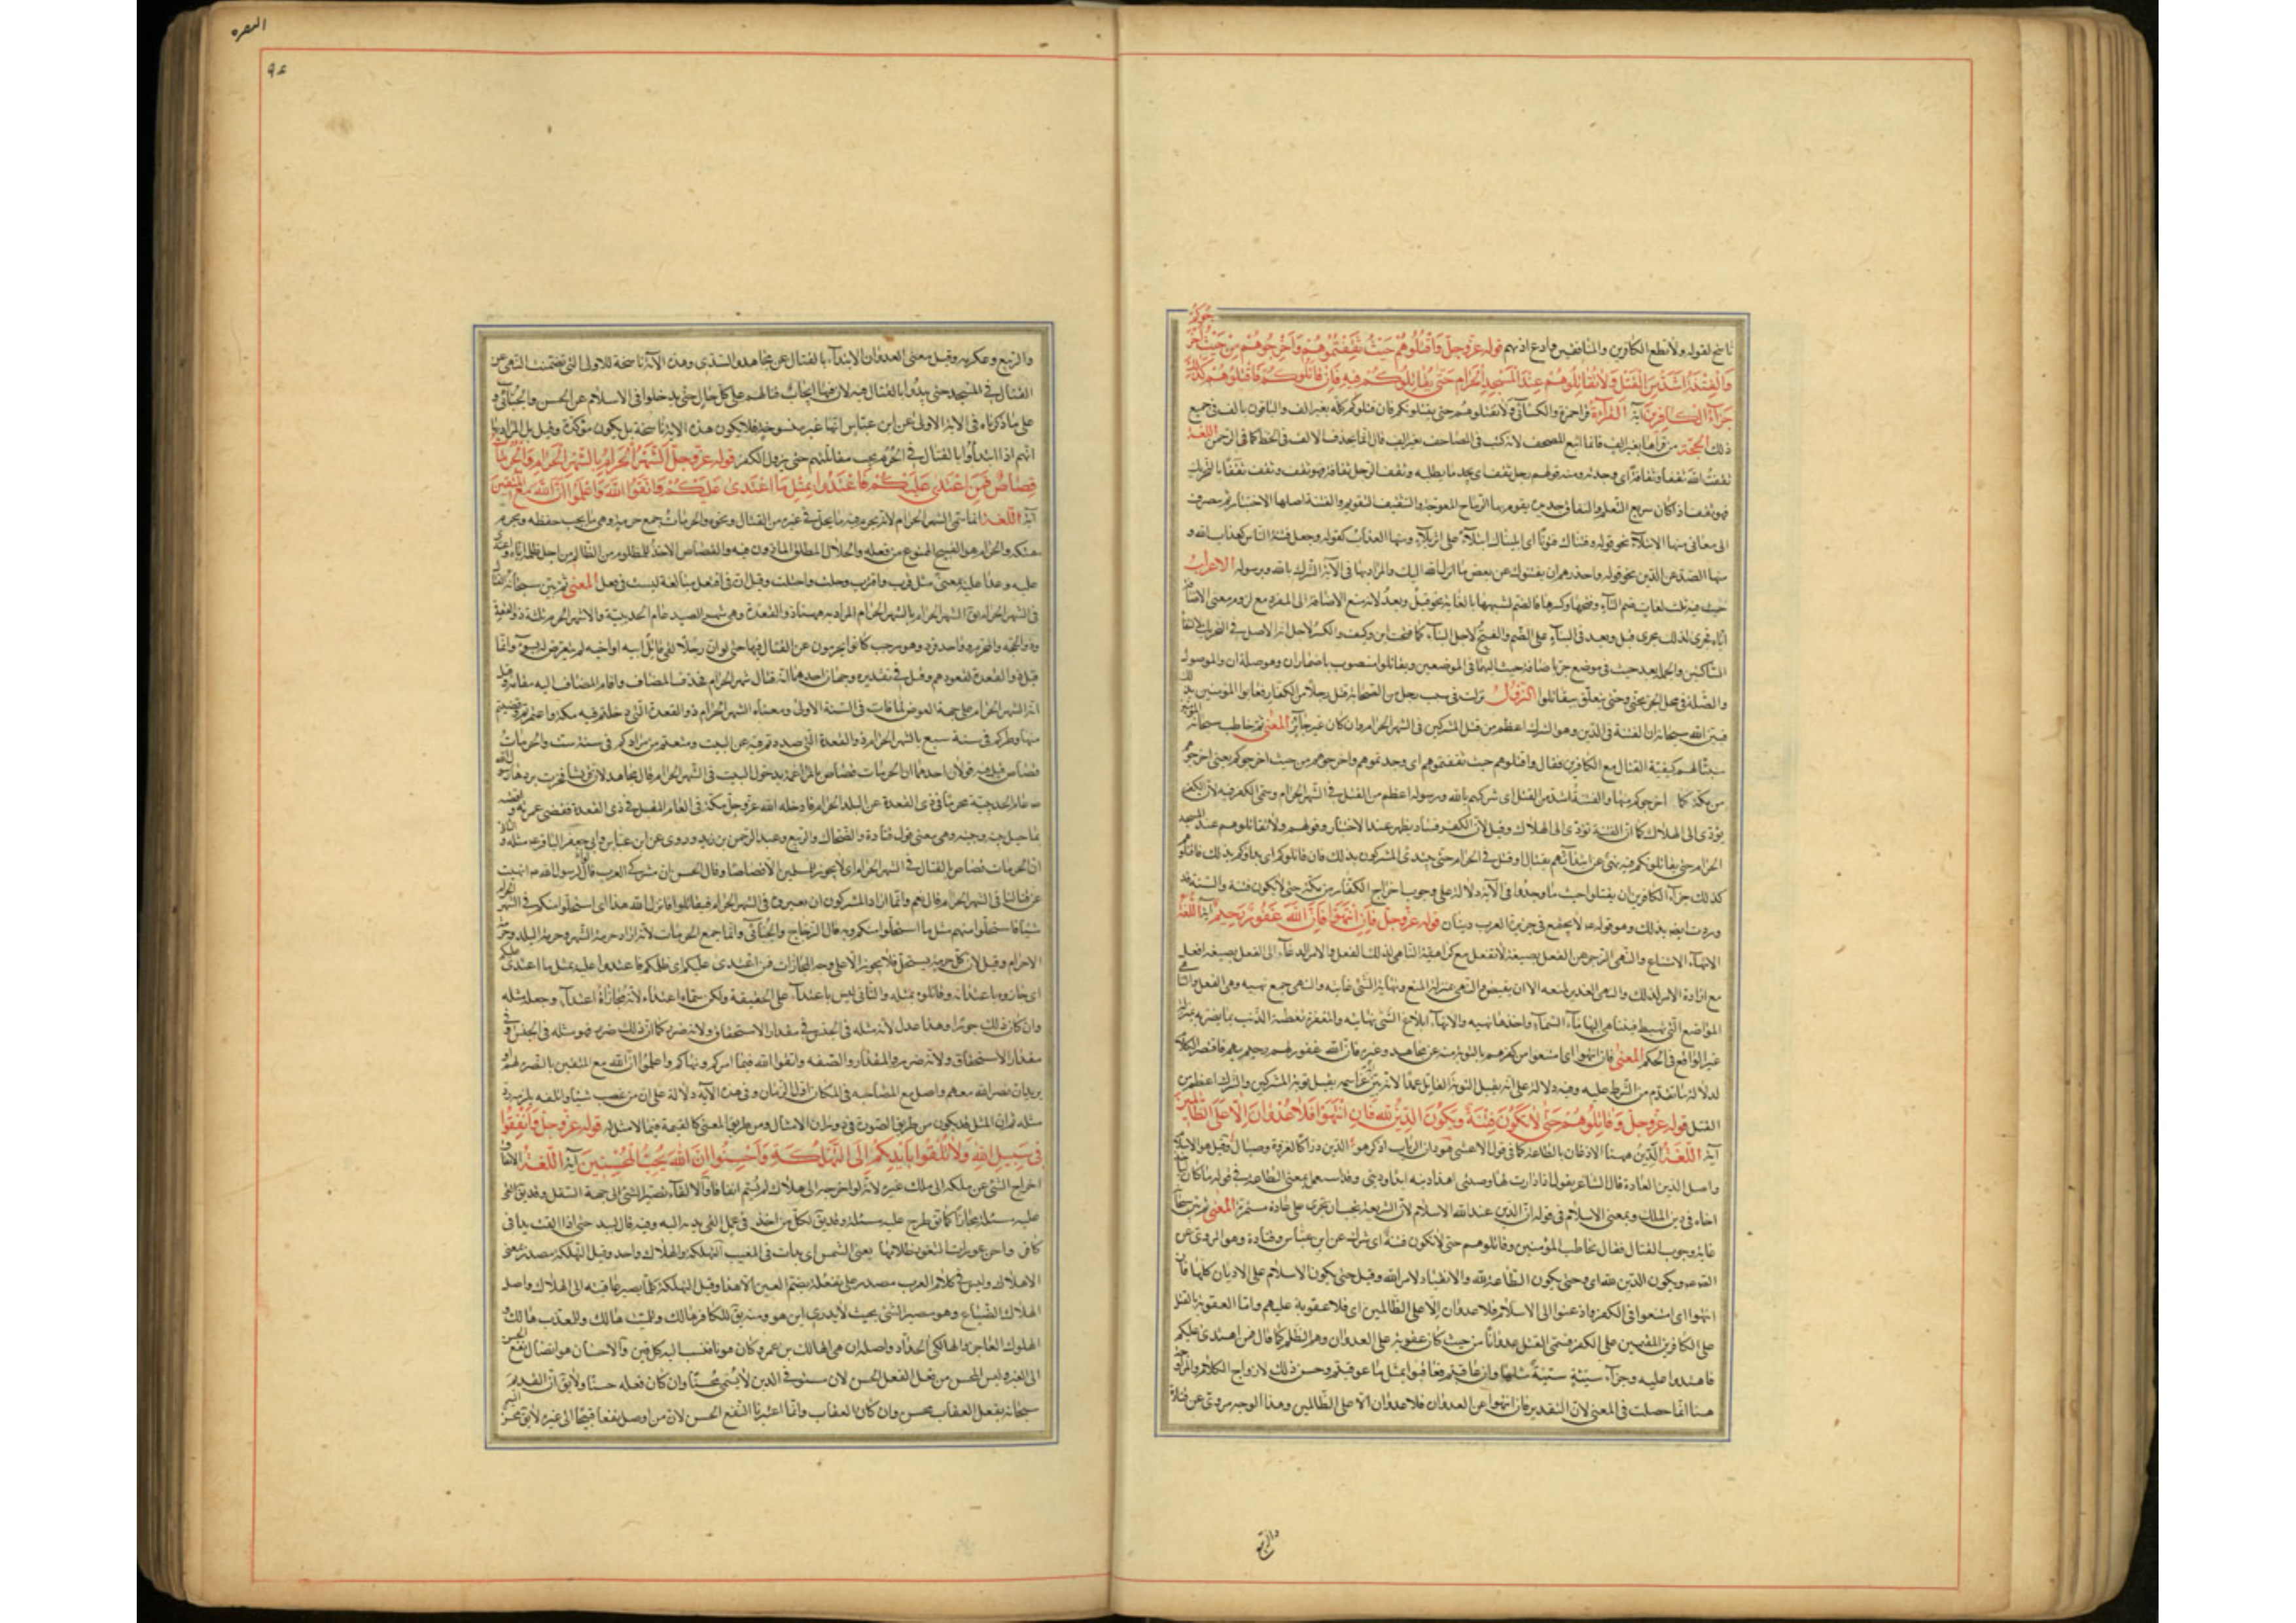 جوكم
ناسخ لقوله ولا تطع الكافرين والمنافقين ودع اذيهم قوله عز وجل واقتلوهم حيث ثقفتموهم واخرجوهم من حيث اخر
والفتنة اشد من القتل ولا تقاتلوهم عند المسجد الحرام حتى يقاتلوكم فيه فان قاتلوكم فاقتلوهم كذلك
جزاء الكافرين آية القراءة قرأ حمزة والكسائي ولا تقتلوهم حتى يقتلوكم فان قتلوكم كله بغير الف والباقون بالف في جميع
ذلك الحجة من قرأها بغير الف فانما اتبع المصحف لانه كتب في المصاحف بغير الف قال انما يحذف الالف في الخط كما في الرحمن اللغة
ثقفت الله ثقفا وثقافة اى وجدته ومنه قولهم رجل ثقف اى يجد ما يطلبه وثقف الرجل ثقافة فهو ثقف وثقف ثقفا بالتحريك
فهو ثقف اذا كان سريع التعلم والثقاف حديدة يقوم بها الرماح المعوجة والتثقيف التقويم والفتنة اصلها الاختبار ثم ينصرف
الى معان منها الابتلاء نحو قوله وفتناك فتونا اى ابتليناك ابتلاء على اثر ابتلاء ومنها العذاب كقوله وجعل فتنة الناس كعذاب الله و
منها الصد عن الدين نحو قوله واحذرهم ان يفتنوك عن بعض ما انزل الله اليك والمراد بها في الآية الشرك بالله وبرسوله الاعراب
حيث فيه ثلث لغات ضم الثاء وفتحها وكسرها فالضم لشبهها بالغاية نحو قبل وبعد لانه منع الاضافة الى المفرد مع لزوم معنى الاضا
اياه فجرى لذلك مجرى قبل وبعد في البناء على الضم والفتح لاجل البناء كما فتحت اين وكيف والكسر لاجل انه الاصل في التحريك لالتقا
الساكنين والجملة بعد حيث في موضع جر باضافة حيث اليها في الموضعين ويقاتلوا منصوب باضمار ان وهو صلة ان والموصول
والصلة في محل الجر بحتى وحتى يتعلق بيقاتلوا النزول نزلت في سبب رجل من الصحابة قتل رجلا من الكفار فعابوا المؤمنين بذ
فبين الله سبحانه ان الفتنة في الدين وهو الشرك اعظم من قتل المشركين في الشهر الحرام وان كان غير جائز المعنى ثم خاطب سبحانه
مبينا لهم كيفية القتال مع الكافرين فقال واقتلوهم حيث ثقفتموهم اى وجدتموهم واخرجوهم من حيث اخرجوكم يعنى اخرجو
من مكة كما اخرجوكم منها والفتنة اشد من القتل اى شركهم بالله ورسوله اعظم من القتل في الشهر الحرام وسمى الكفر فتنة لان الكفر
يؤدى الى الهلاك كما ان الفتنة تؤدى الى الهلاك وقيل لان الكفر فساد يظهر عند الاختبار وقوله ولا تقاتلوهم عند المسجد
الحرام حتى يقاتلوكم فيه نهى عن ابتدائهم بقتال او قتل في الحرم حتى يبتدئ المشركون بذلك فان قاتلوكم اى بدأوكم بذلك فاقتلو
كذلك جزاء الكافرين ان يقتلوا حيث ما وجدوا وفي الآية دلالة على وجوب اخراج الكفار من مكة حتى لا يكون فتنة والسنة قد
وردت ايضا بذلك وهو قوله لا يجتمع في جزيرة العرب دينان قوله عز وجل فان انتهوا فان الله غفور رحيم آية اللغة
الانتهاء الامتناع والنهى الزجر عن الفعل بصيغة لا تفعل مع كراهية الناهى لذلك الفعل والامر الدعاء الى الفعل بصيغة افعل
مع ارادة الامر لذلك
غير الواقع في الحكم المعنى فان انتهوا اى امتنعوا من كفرهم بالتوبة منه عن مجاهد وغيره فان الله غفور لهم رحيم بهم
لدلالة ما تقدم من الشرط عليه وفيه دلالة على انه يقبل التوبة القاتل عمدا لانه بين عز اسمه يقبل توبة المشركين والشرك اعظم من
القتل قوله عز وجل وقاتلوهم حتى لا تكون فتنة ويكون الدين لله فان انتهوا فلا عدوان الا على الظالمين
آية اللغة الدين ههنا الاذعان بالطاعة كما في قول الاعشى هو دان الرباب اذ كرهوا الدين دراكا بغزوة وصيال وقيل هو الاسلام
واصل الدين العادة قال الشاعر تقول اذا درأت لها وضينى اهذا دينه ابدا ودينى وقد استعمل بمعنى الطاعة في قوله ما كان ليأ
اخاه في دين الملك وبمعنى الاسلام في قوله ان الدين عند الله الاسلام لان الشريعة يجب ان تجرى على عادة مستمرة المعنى ثم بين سبحا
غاية وجوب القتال فقال يخاطب المؤمنين وقاتلوهم حتى لا تكون فتنة اى شرك عن ابن عباس وقتادة وهو المروى عن
الصادق ويكون الدين لله اى وحتى يكون الطاعة لله والانقياد لامر الله وقيل حتى يكون الاسلام على الاديان كلها فان
انتهوا اى امتنعوا من الكفر واذعنوا الى الاسلام فلا عدوان الا على الظالمين اى فلا عقوبة عليهم وانما العقوبة بالقتل
على الكافرين المقيمين على الكفر فسمى القتل عدوانا من حيث كان عقوبة على العدوان وهو الظلم كما قال فمن اعتدى عليكم
فاعتدوا عليه وجزاء سيئة سيئة مثلها وان عاقبتم فعاقبوا بمثل ما عوقبتم وحسن ذلك لازدواج الكلام والمزا
هنا انما حصلت في المعنى لان التقدير فان انتهوا عن العدوان فلا عدوان الا على الظالمين وهذا الوجه مروى عن قتادة
والربيع
البقره
٩٤
والربيع وعكرمه وقيل معنى العدوان الابتداء بالقتال عن مجاهد والسدى وهذه الآية ناسخة للاولى التى تضمنت النهى عن
القتال في المسجد حتى يبدؤا بالقتال فيه لان فيها ايجاب قتالهم على كل حال حتى يدخلوا في الاسلام عن الحسن والجبائى و
على ما ذكرناه في الآية الاولى عن ابن عباس انها غير منسوخة فلا يكون هذه الآية ناسخة بل يكون مؤكدة وقيل بل المراد بها
انهم اذا ابتدأوا بالقتال في الحرم يجب مقاتلتهم حتى يزول الكفر قوله عز وجل الشهر الحرام بالشهر الحرام والحرمات
قصاص فمن اعتدى عليكم فاعتدوا عليه بمثل ما اعتدى عليكم واتقوا الله واعلموا ان الله مع المتقين
آية اللغة انما سمى الشهر الحرام لانه يحرم فيه ما يحل في غيره من القتال ونحوه والحرمات جمع حرمة وهى ما يجب حفظه ويحرم
هتكه والحرام هو القبيح الممنوع من فعله والحلال المطلق المأذون فيه والقصاص الاخذ للمظلوم من الظالم من اجل ظلمه اياه واعتد
عليه وعدا عليه بمعنى مثل قرب واقترب وجلب واجتلب وقيل ان في افتعل مبالغة ليست في فعل المعنى ثم بين سبحانه القتا
في الشهر الحرام فقال الشهر الحرام بالشهر الحرام المراد به ههنا ذو القعدة وهى شهر الصد عام الحديبية والاشهر الحرم ثلثة ذو القعدة
وذو الحجة والمحرم وواحد فرد وهو رجب كانوا يحرمون عن القتال فيها حتى لو ان رجلا لقى قاتل ابيه او اخيه لم يتعرض له بسوء وانما
قيل ذو القعدة لقعودهم وقيل في تقديره وجهان احدهما انه قتال شهر الحرام فحذف المضاف واقام المضاف اليه مقامه وقيل
انه الشهر الحرام على جهة العوض لما فات في السنة الاولى ومعناه الشهر الحرام ذو القعدة الذى دخلتم فيه مكة واعتمرتم وقضيتم
منها وطركم في سنة سبع بالشهر الحرام ذو القعدة الذى صددتم فيه عن البيت ومنعتم من مرادكم في سنة ست والحرمات
قصاص قيل فيه قولان احدهما ان الحرمات قصاص بالمراغمة بدخول البيت في الشهر الحرام قال مجاهد لان قريشا فخرت بردها رسول الله
عام الحديبية محرما في ذى القعدة عن البلد الحرام فادخله الله عز وجل مكة في العام المقبل في ذى القعدة فقضى عمرته واقصه
بما حيل بينه وبينه وهى معنى قول قتادة والضحاك والربيع وعبد الرحمن بن زيد وروى عن ابن عباس وابى جعفر الباقر مثله والثانى
ان الحرمات قصاص القتال في الشهر الحرام اى لا يجوز للمسلمين الا قصاصا وقال الحسن ان مشركى العرب قالوا لرسول الله انهيت
عن قتالنا في الشهر الحرام قال نعم وانما اراد المشركون ان يغيروه في الشهر الحرام فيقاتلوه فانزل الله هذا اى استحلوا منكم في الشهر الحرام
شيئا فاستحلوا منهم مثل ما استحلوا منكم وبه قال الزجاج والجبائى وانما جمع الحرمات لانه اراد حرمة الشهر وحرمة البلد وحرمة
الاحرام وقيل لان كل حرمة تستحل فلا يجوز الا على وجه المجازات فمن اعتدى عليكم اى ظلمكم فاعتدوا عليه بمثل ما اعتدى عليكم
اى جازوه باعتدائه وقاتلوه بمثله والثانى ليس باعتداء على الحقيقة ولكن سماه اعتداء لانه مجازاة اعتداء وجعله مثله
وان كان ذلك جورا وهذا عدل لانه مثله في الجنس وفي مقدار الاستحقاق ولانه ضرر كما ان ذلك ضرر فهو مثله في الجنس وفى
مقدار الاستحقاق ولانه ضرر والمقدار والصفة واتقوا الله فيما امركم ونهاكم واعلموا ان الله مع المتقين بالنصرة لهم او
يريد ان نصر الله معهم واصل مع المصاحبة في المكان او الزمان وفى هذه الآية دلالة على ان من غصب شيئا واتلفه يلزمه رد
مثله ثم ان المثل قد يكون من طريق الصورة في ذوات الامثال ومن طريق المعنى كالقيمة فيما لا مثل له قوله عز وجل وانفقوا
في سبيل الله ولا تلقوا بايديكم الى التهلكة واحسنوا ان الله يحب المحسنين آية اللغة الانفاق
اخراج الشئ عن ملكه الى ملك غيره لانه لو اخرجه الى هلاك لم يسم انفاقا والالقاء تصيير الشئ الى جهة السفل وقد يق القى
عليه مسئلة مجازا كما يق طرح عليه مسئلة وقد يق لكل من اخذ في عمل القى يديه اليه وفيه قال لبيد حتى اذا القت يدا في
كافر واجن عورات الثغور ظلامها يعنى الشمس اى بدأت في المغيب التهلكة والهلاك واحد وقيل التهلكة مصدر بمعنى
الاهلاك وليس في كلام العرب مصدر على تفعلة بضم العين الا هذا وقيل التهلكة كلما يصير عاقبته الى الهلاك واصل
الهلاك الضياع وهو مصير الشئ بحيث لا يدرى اين هو ومنه يق للكافر هالك وللميت هالك وللمعذب هالك و
الهلوك الفاجرة والهالكى الحداد واصله ان بنى الهالك بن عمرو كان قيونا فنسب اليه كل قين والاحسان هو ايصال النفع الحسن
الى الغير وليس المحسن من فعل الفعل الحسن لان مستوفى الدين لا يسمى محسنا وان كان فعله حسنا ولا يق ان القديم
سبحانه بفعل العقاب محسن وان كان العقاب وانما اعتبرنا النفع الحسن لان من اوصل نفعا قبيحا الى غيره لا يق محسن